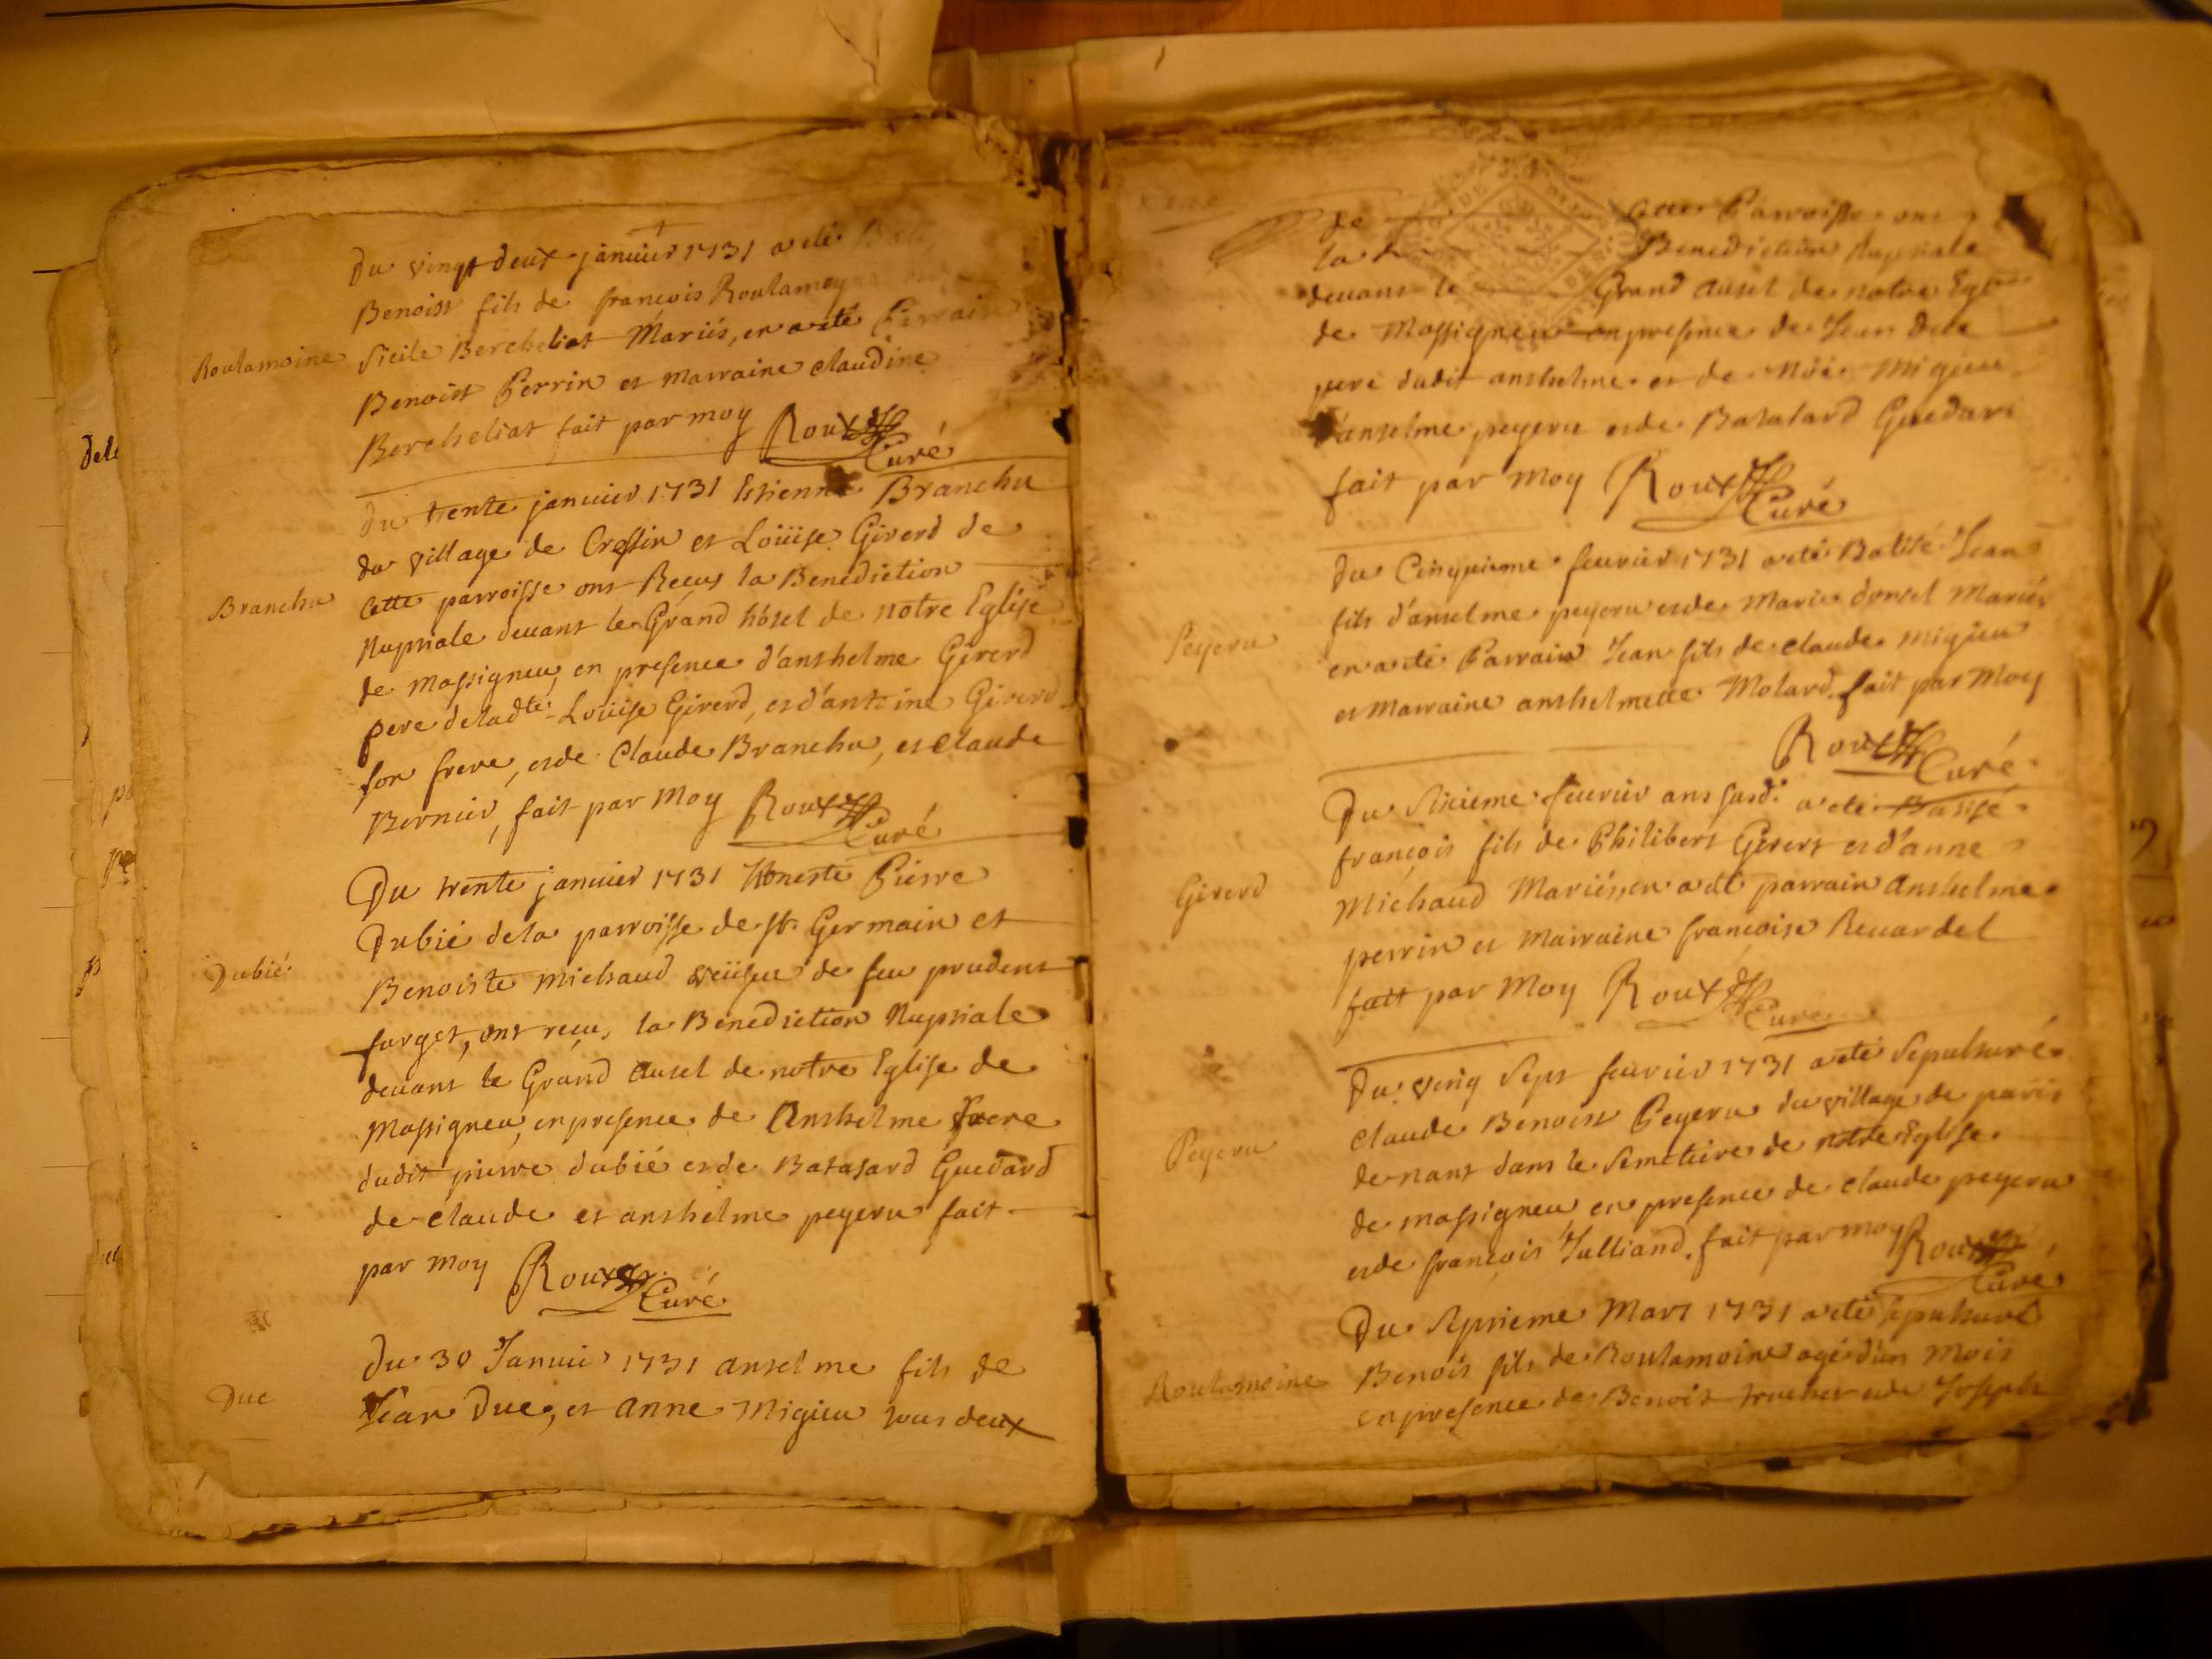 Du vingt deux janvier 1731 a eté
Benoist fils de françois Roulamoy
Roulamoine
Sicile Bercheliat Mariés, en a eté Parrain
Benoist Perrin et marraine claudine
Bercheliat fait par moy Roux
Curé
Du trente janvier 1731 Estienne Branchu
du village de Cressin et Loüise Girerd de
Branchu
Cette parroisse ont Receus la Benediction
Nuptiale devant le Grand hôtel de notre Eglise
de Massigneu, en presence d'anthelme Girerd
pere deladte Loüise Girerd, et d'antoine Girerd
son frere, et de Claude Branchu, et claude
Bernier, fait par Moy Roux
Curé
Du trente janvier 1731 Honeste Pierre
Dubié dela parroisse de st. Germain et
Dubié
Benoiste Michaud veüfeu de feu prudent
farget, ont reçus la Benediction Nuptiale
devant le Grand autel de notre Eglise de
Massigneu, en presence de Anthelme frere
dudit pierre dubié et de Batasard Guedard
de claude et anthelme peyeru fait
par moy Roux
Curé
Du 30 Janvier 1731 anselme fils de
Duc
Jean Duc, et anne Migieu tous deux
de cette Parroisse ont
la Benediction Nuptiale
devant le Grand autel de notre Eglise
de Massigneu en presence de Jean Duc
pere dudit anthelme et de Migieu
d'anselme peyeru et de Batalard Guedard
fait par Moy Roux
Curé
Du Cinquieme fevrier 1731 a eté Batisé Jean
fils d'anselme peyeru et de Marie donsel Mariés
Peyeru
en a eté Parrain Jean fils de claude migieu
et Marraine anthelmette Molard fait par Moy
Roux
Curé
Du Sixieme fevrier an susd. a eté Batisé
françois fils de Philibert Girert et d'anne
Girerd
Michaud Mariés, en a eté parrain anthelme
perrin et Marraine françoise Revardel
fait par Moy Roux
Curé
Du ving Sept fevrier 1731 a eté Sepulturé
claude Benoist Peyeru du village de paris
Peyeru
denant dans le Semetiere de notre Eglise
de massigneu en presence de claude peyeru
et de françois Julliand. fait par moy Roux
Curé
Du Septieme Mars 1731 a eté sepulturé
Roulamoine
Benoit fils de Roulamoine agé d'un Mois
en presence de Benoit et de Joseph